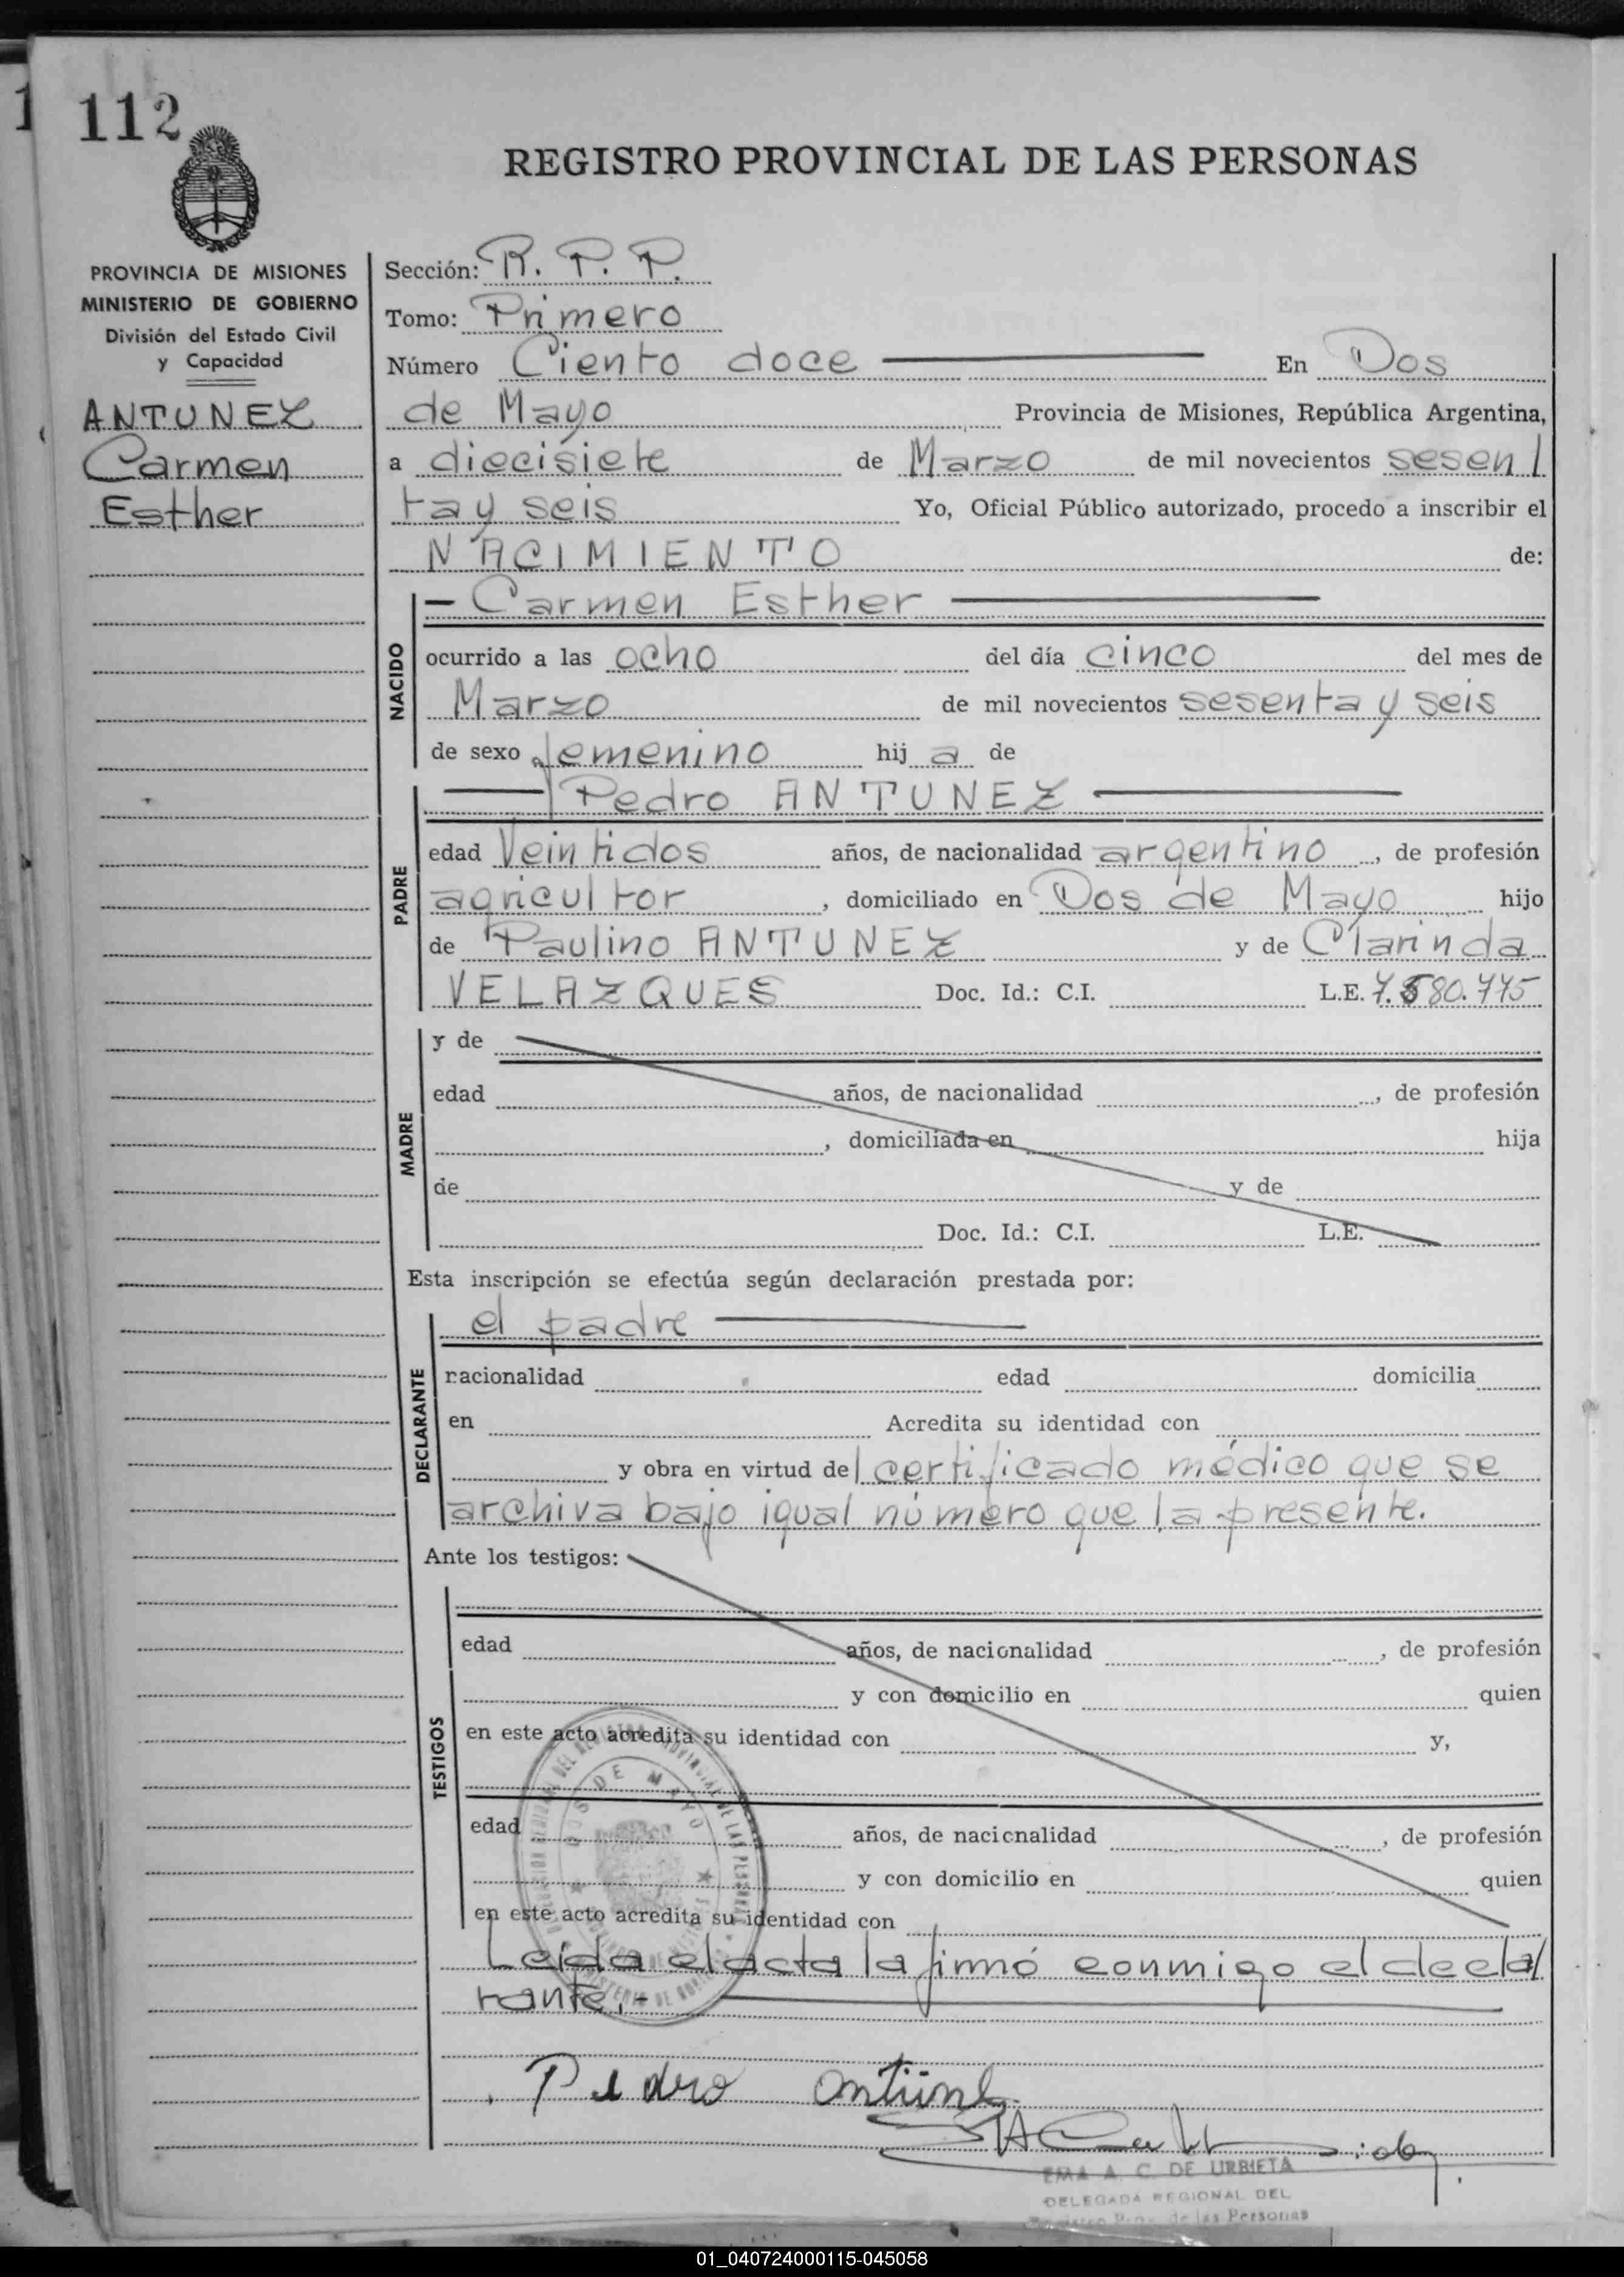 112
REGISTRO PROVINCIAL DE LAS PERSONAS
PROVINCIA DE MISIONES
MINISTERIO DE GOBIERNO
División del Estado Civil
y Capacidad
ANTUNEZ
Carmen
Esther
Sección: R. P. P.
Tomo: Primero
Número Ciento doce En Dos
de Mayo Provincia de Misiones, República Argentina,
a diecisiete de Marzo de mil novecientos sesen/
ta y seis Yo, Oficial Público autorizado, procedo a inscribir el
NACIMIENTO de:
NACIDO
— Carmen Esther —
ocurrido a las ocho del día cinco del mes de
Marzo de mil novecientos sesenta y seis
de sexo femenino hij a de
PADRE
— Pedro ANTUNEZ —
edad Veintidos años, de nacionalidad argentino, de profesión
agricultor, domiciliado en Dos de Mayo hijo
de Paulino ANTUNEZ y de Clarinda
VELAZQUES Doc. Id.: C.I. L.E. 7.580.775
MADRE
y de
edad años, de nacionalidad , de profesión
, domiciliada en hija
de y de
Doc. Id.: C.I. L.E.
Esta inscripción se efectúa según declaración prestada por:
DECLARANTE
el padre
nacionalidad edad domicilia
en Acredita su identidad con
y obra en virtud del certificado médico que se
archiva bajo igual número que la presente.
Ante los testigos:
TESTIGOS
edad años, de nacionalidad , de profesión
y con domicilio en quien
en este acto acredita su identidad con y,
edad años, de nacionalidad , de profesión
y con domicilio en quien
en este acto acredita su identidad con
DOS DE MAYO
Leida el acta la firmó conmigo el decla/
rante.-
Pedro Antúnez
EMA A. C. DE URBIETA
DELEGADA REGIONAL DEL
de las Personas
01_040724000115-045058